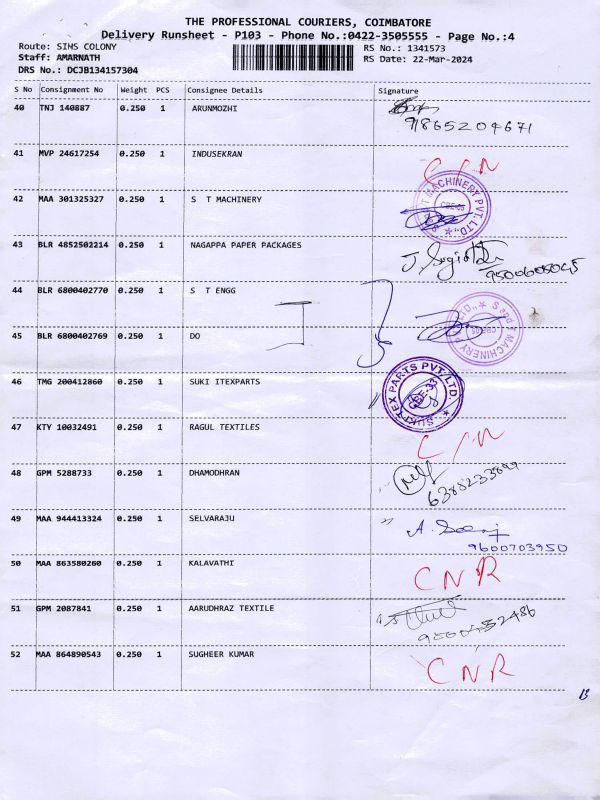 THE PROFESSIONAL COURIERS, COIMBATORE
Delivery Runsheet - P103 - Phone No.:0422-3505555 - Page No.:4
Route: SIHS COLONY
RS No.: 1341573
Staff: AMARNATH
RS Date: 22-Mar-2024
DRS No.: DCJB134157304
S No Consignment No Weight PCS Consignee Details Signature
40 TNJ 140887 0.250 1 ARUNMOZHI
9865204671
41 MVP 24617254 0.250 1 INDUSEKRAN
C/N
42 MAA 301325327 0.250 1 S T MACHINERY
MACHINERY PVT. LTD. CBE-05
43 BLR 4852502214 0.250 1 NAGAPPA PAPER PACKAGES
9500605045
44 BLR 6800402770 0.250 1 S T ENGG
45 BLR 6800402769 0.250 1 DO
S and T MACHINERY LTD. CBE-05
46 TMG 200412860 0.250 1 SUKI ITEXPARTS
SUKITEX PARTS PVT. LTD. CBE-33
47 KTY 10032491 0.250 1 RAGUL TEXTILES
C/N
48 GPM 5288733 0.250 1 DHAMODHRAN
49 MAA 944413324 0.250 1 SELVARAJU
9600703950
50 MAA 863580260 0.250 1 KALAVATHI
CNR
51 GPM 2087841 0.250 1 AARUDHRAZ TEXTILE
52 MAA 864890543 0.250 1 SUGHEER KUMAR
CNR
13